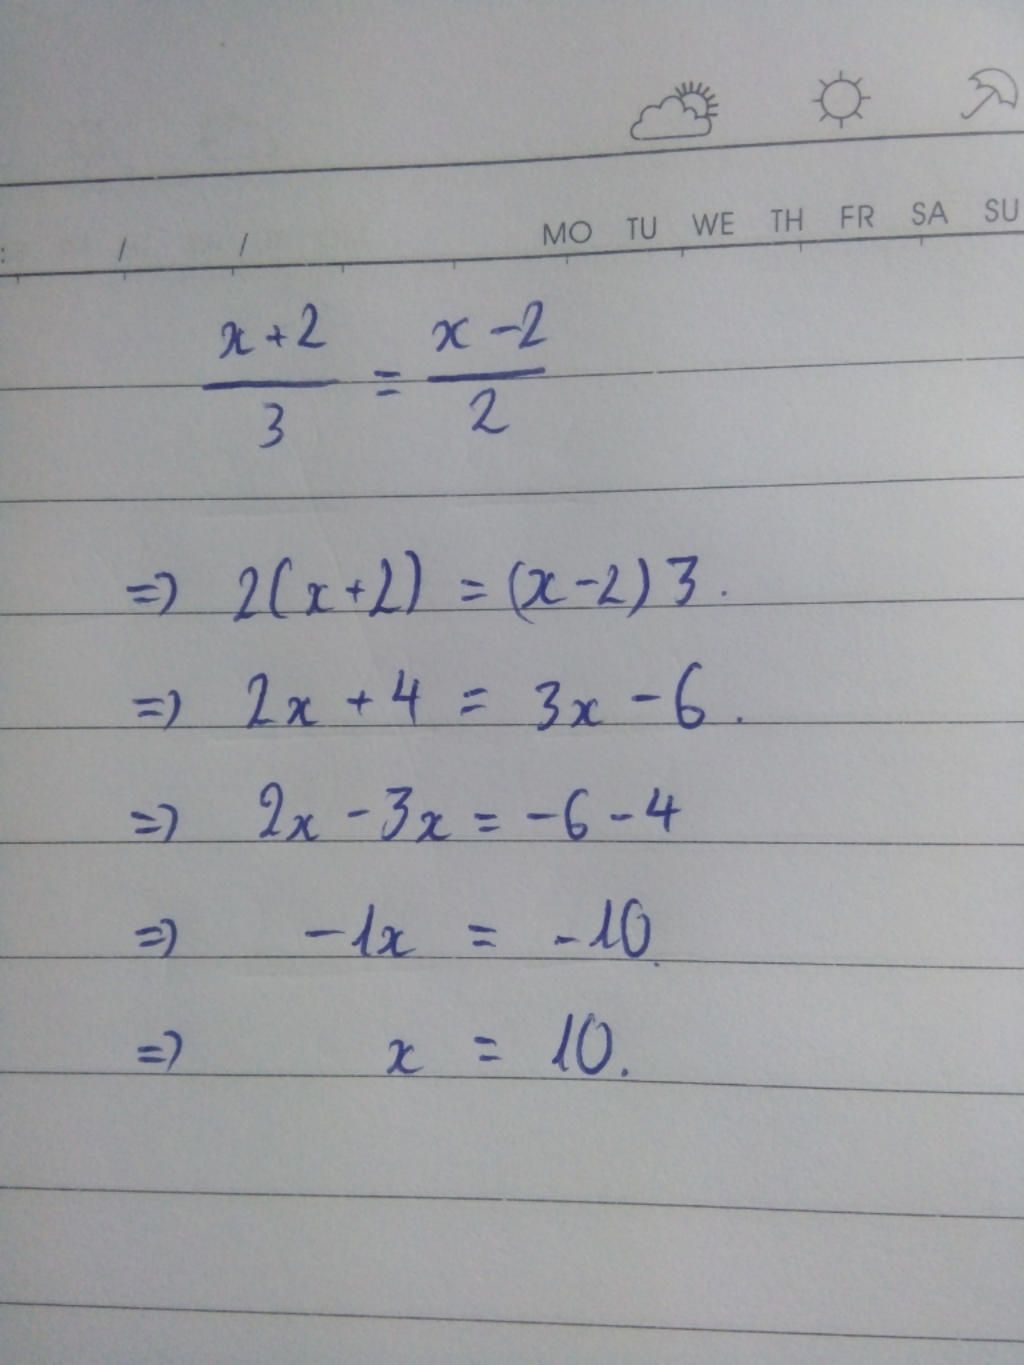 MO TU WE TH FR SA SU
: / /
x+2/3 = x-2/2
=> 2(x+2) = (x-2)3.
=> 2x + 4 = 3x - 6.
=> 2x - 3x = -6 - 4
=> -1x = -10.
=> x = 10.